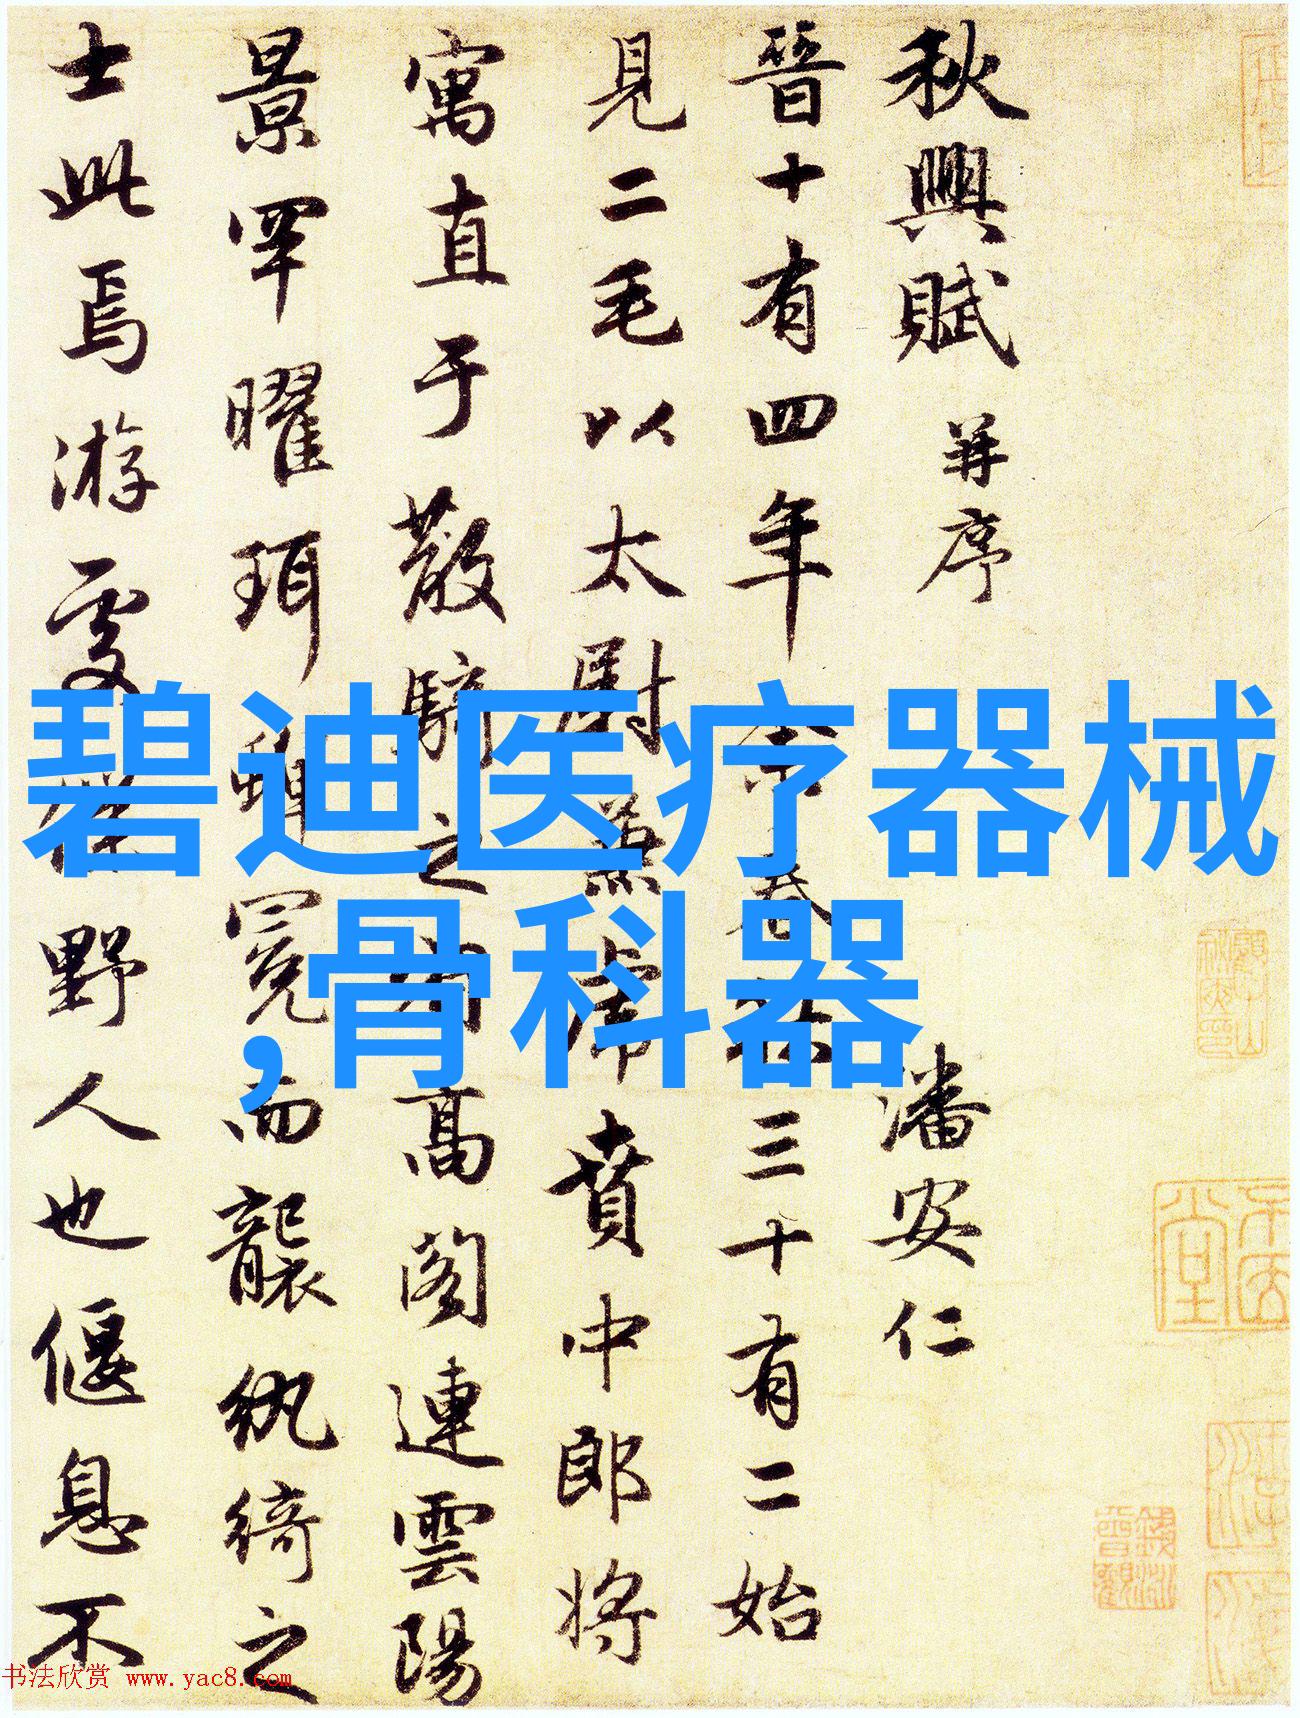 秋興賦 并序 潘安仁
晉十有四年余春秋三十有二始
見二毛以太尉兼虎賁中郎将
寓直于散騎之省高閣連雲陽
景罕曜珥蟬冕而襲紈綺之
士此焉游處僕野人也偃息不
碧迪医疗器械
,骨科器
书法欣赏 www.yac8.com